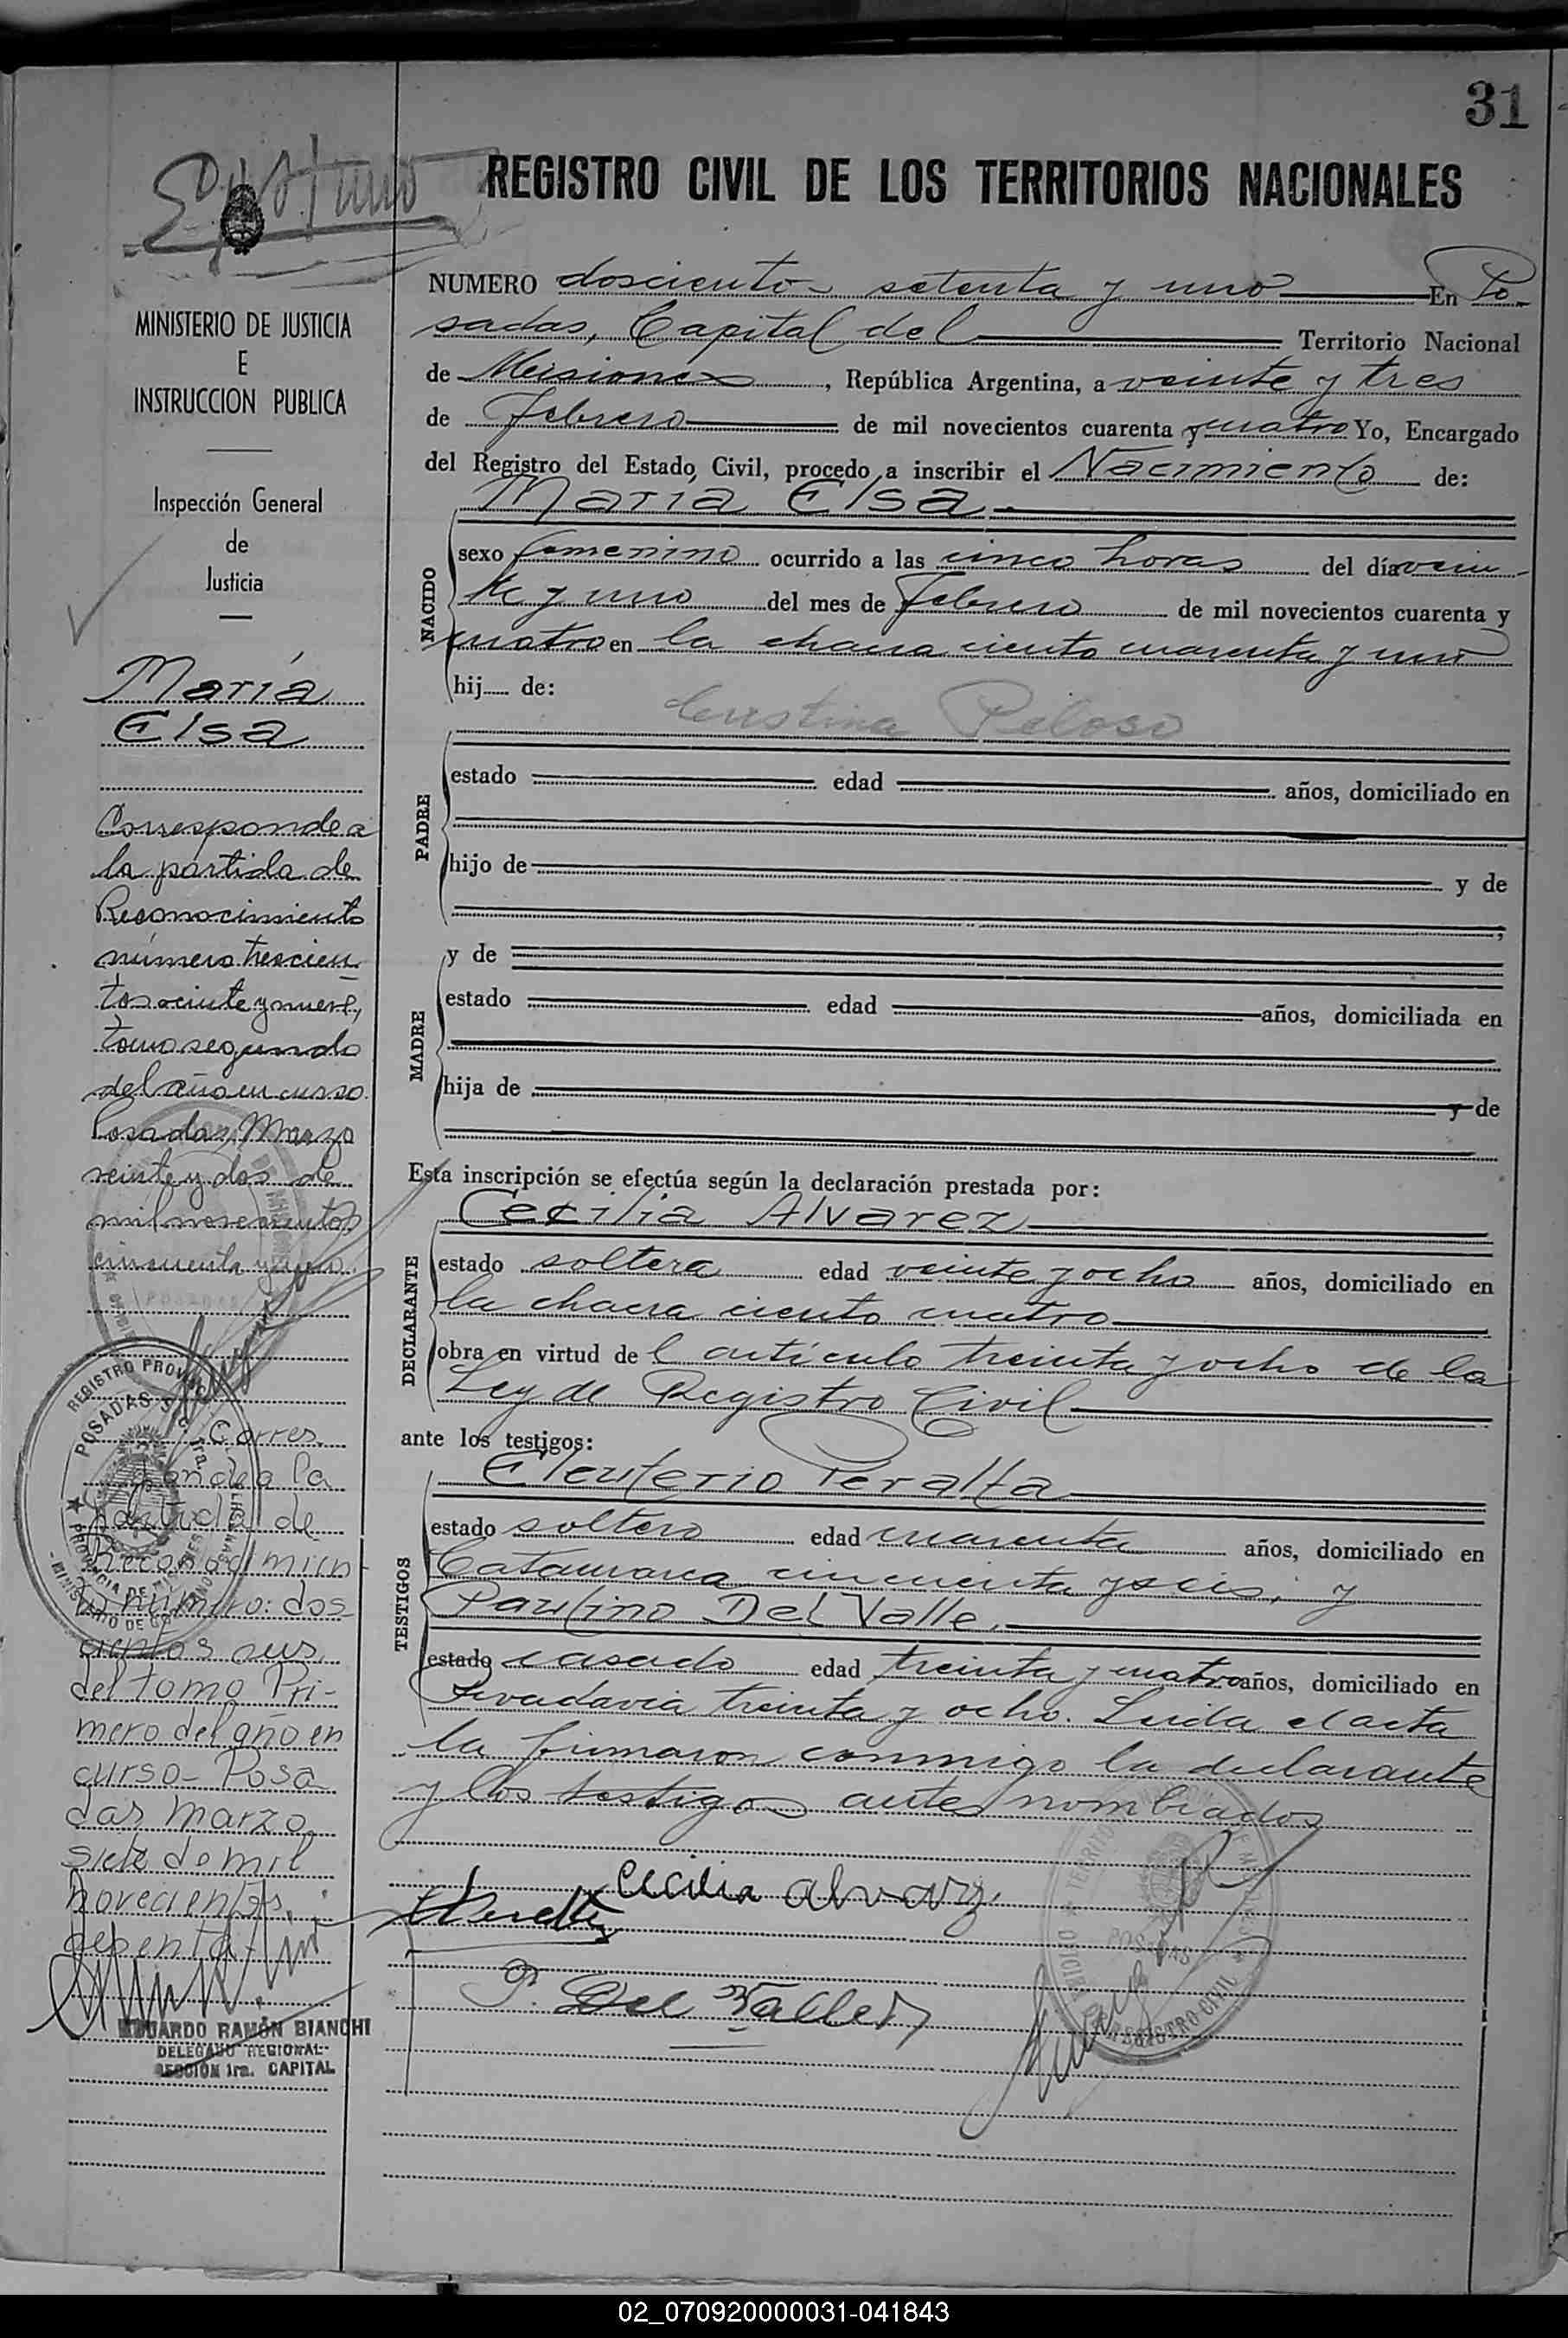 31
REGISTRO CIVIL DE LOS TERRITORIOS NACIONALES
MINISTERIO DE JUSTICIA
E
INSTRUCCION PUBLICA
Inspección General
de
Justicia
María
Elsa
Corresponde a
la partida de
Reconocimiento
número trescien
tos veinte y nueve,
tomo segundo
del año en curso.
Posadas, Marzo
veinte y dos de
mil novecientos
cincuenta y uno.
Corres
ponde a la
partida de
Reconocimien
to número: dos
cientos seis
del tomo Pri-
mero del año en
curso- Posa
das marzo
siete de mil
novecientos
EDUARDO RAMÓN BIANCHI
DELEGADO REGIONAL
SECCIÓN 1ra. CAPITAL
NUMERO doscientos setenta y uno En Po-
sadas, Capital del Territorio Nacional
de Misiones, República Argentina, a veinte y tres
de febrero de mil novecientos cuarenta y cuatro Yo, Encargado
del Registro del Estado Civil, procedo a inscribir el Nacimiento de:
María Elsa
NACIDO
sexo femenino ocurrido a las cinco horas del día vein-
te y uno del mes de febrero de mil novecientos cuarenta y
cuatro en la chacra ciento cuarenta y uno
hij de:
Cristina Peloso
PADRE
estado edad años, domiciliado en
hijo de y de
MADRE
y de
estado edad años, domiciliada en
hija de y de
Esta inscripción se efectúa según la declaración prestada por:
Cecilia Alvarez
DECLARANTE
estado soltera edad veinte y ocho años, domiciliado en
la chacra ciento cuatro
obra en virtud del artículo treinta y ocho de la
Ley de Registro Civil
ante los testigos:
Eleuterio Peralta
TESTIGOS
estado soltero edad cuarenta años, domiciliado en
Catamarca cincuenta y seis, y
Paulino Del Valle.
estado casado edad treinta y cuatro años, domiciliado en
Rivadavia treinta y ocho. Leida el acta
la firmaron conmigo la declarante
y los testigos antes nombrados
Cecilia alvarez
P. Del Valle
POSADAS
REGISTRO CIVIL
02_070920000031-041843